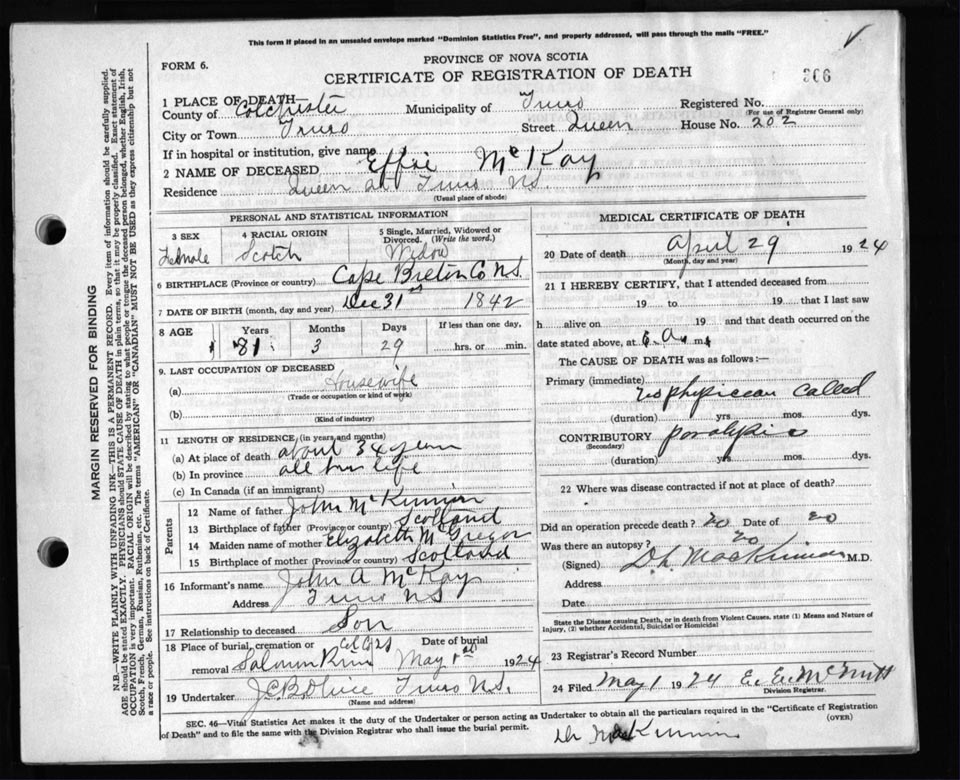 This form if placed in an unsealed envelope marked "Dominion Statistics Free", and properly addressed, will pass through the mails "FREE."
FORM 6.
PROVINCE OF NOVA SCOTIA
CERTIFICATE OF REGISTRATION OF DEATH
306
1 PLACE OF DEATH—
County of Colchester Municipality of Truro Registered No.
(For use of Registrar General only)
City or Town Truro Street Queen House No. 202
If in hospital or institution, give name
2 NAME OF DECEASED Effie McKay
Residence Queen St Truro NS
(Usual place of abode)
PERSONAL AND STATISTICAL INFORMATION
3 SEX 4 RACIAL ORIGIN 5 Single, Married, Widowed or Divorced. (Write the word.)
Female Scotch Widow
6 BIRTHPLACE (Province or country) Cape Breton Co N.S.
7 DATE OF BIRTH (month, day and year) Dec 31st 1842
8 AGE Years Months Days If less than one day,
81 3 29 hrs. or min.
9. LAST OCCUPATION OF DECEASED
(a) Housewife
(Trade or occupation or kind of work)
(b)
(Kind of industry)
11 LENGTH OF RESIDENCE (in years and months)
(a) At place of death about 34 years
(b) In province all her life
(c) In Canada (if an immigrant)
Parents
12 Name of father John McKinnon
13 Birthplace of father (Province or country) Scotland
14 Maiden name of mother Elizabeth McGregor
15 Birthplace of mother (Province or country) Scotland
16 Informant's name John A McKay
Address Truro NS
17 Relationship to deceased Son
18 Place of burial, cremation or removal Salmon River Col Co NS Date of burial May 1st 1924
19 Undertaker Truro N.S.
(Name and address)
MEDICAL CERTIFICATE OF DEATH
20 Date of death April 29 1924
(Month, day and year)
21 I HEREBY CERTIFY, that I attended deceased from
19 to 19 that I last saw
h alive on 19 and that death occurred on the
date stated above, at 6. A. m.
The CAUSE OF DEATH was as follows:—
Primary (immediate)
no physician called
(duration) yrs. mos. dys.
CONTRIBUTORY paralysis
(Secondary)
(duration) yrs. mos. dys.
22 Where was disease contracted if not at place of death?
Did an operation precede death? no Date of no
Was there an autopsy? no
(Signed) D.L. MacKinnon M.D.
Address
Date
State the Disease causing Death, or in death from Violent Causes, state (1) Means and Nature of Injury, (2) whether Accidental, Suicidal or Homicidal
23 Registrar's Record Number
24 Filed May 1 1924 E. E. McNutt
Division Registrar.
SEC. 46—Vital Statistics Act makes it the duty of the Undertaker or person acting as Undertaker to obtain all the particulars required in the "Certificate of Registration
of Death" and to file the same with the Division Registrar who shall issue the burial permit.
(OVER)
Dr MacKinnon
MARGIN RESERVED FOR BINDING
N.B.—WRITE PLAINLY WITH UNFADING INK—THIS IS A PERMANENT RECORD. Every item of information should be carefully supplied.
AGE should be stated EXACTLY. PHYSICIANS should STATE CAUSE OF DEATH in plain terms, so that it may be properly classified. Exact statement of
OCCUPATION is very important. RACIAL ORIGIN will be described by stating to what people or tongue the deceased person belonged, whether English, Irish,
Scotch, French, German, Russian, Ruthenian, etc. The terms "AMERICAN" OR "CANADIAN" MUST NOT BE USED as they express citizenship but not
a race or people. See instructions on back of Certificate.